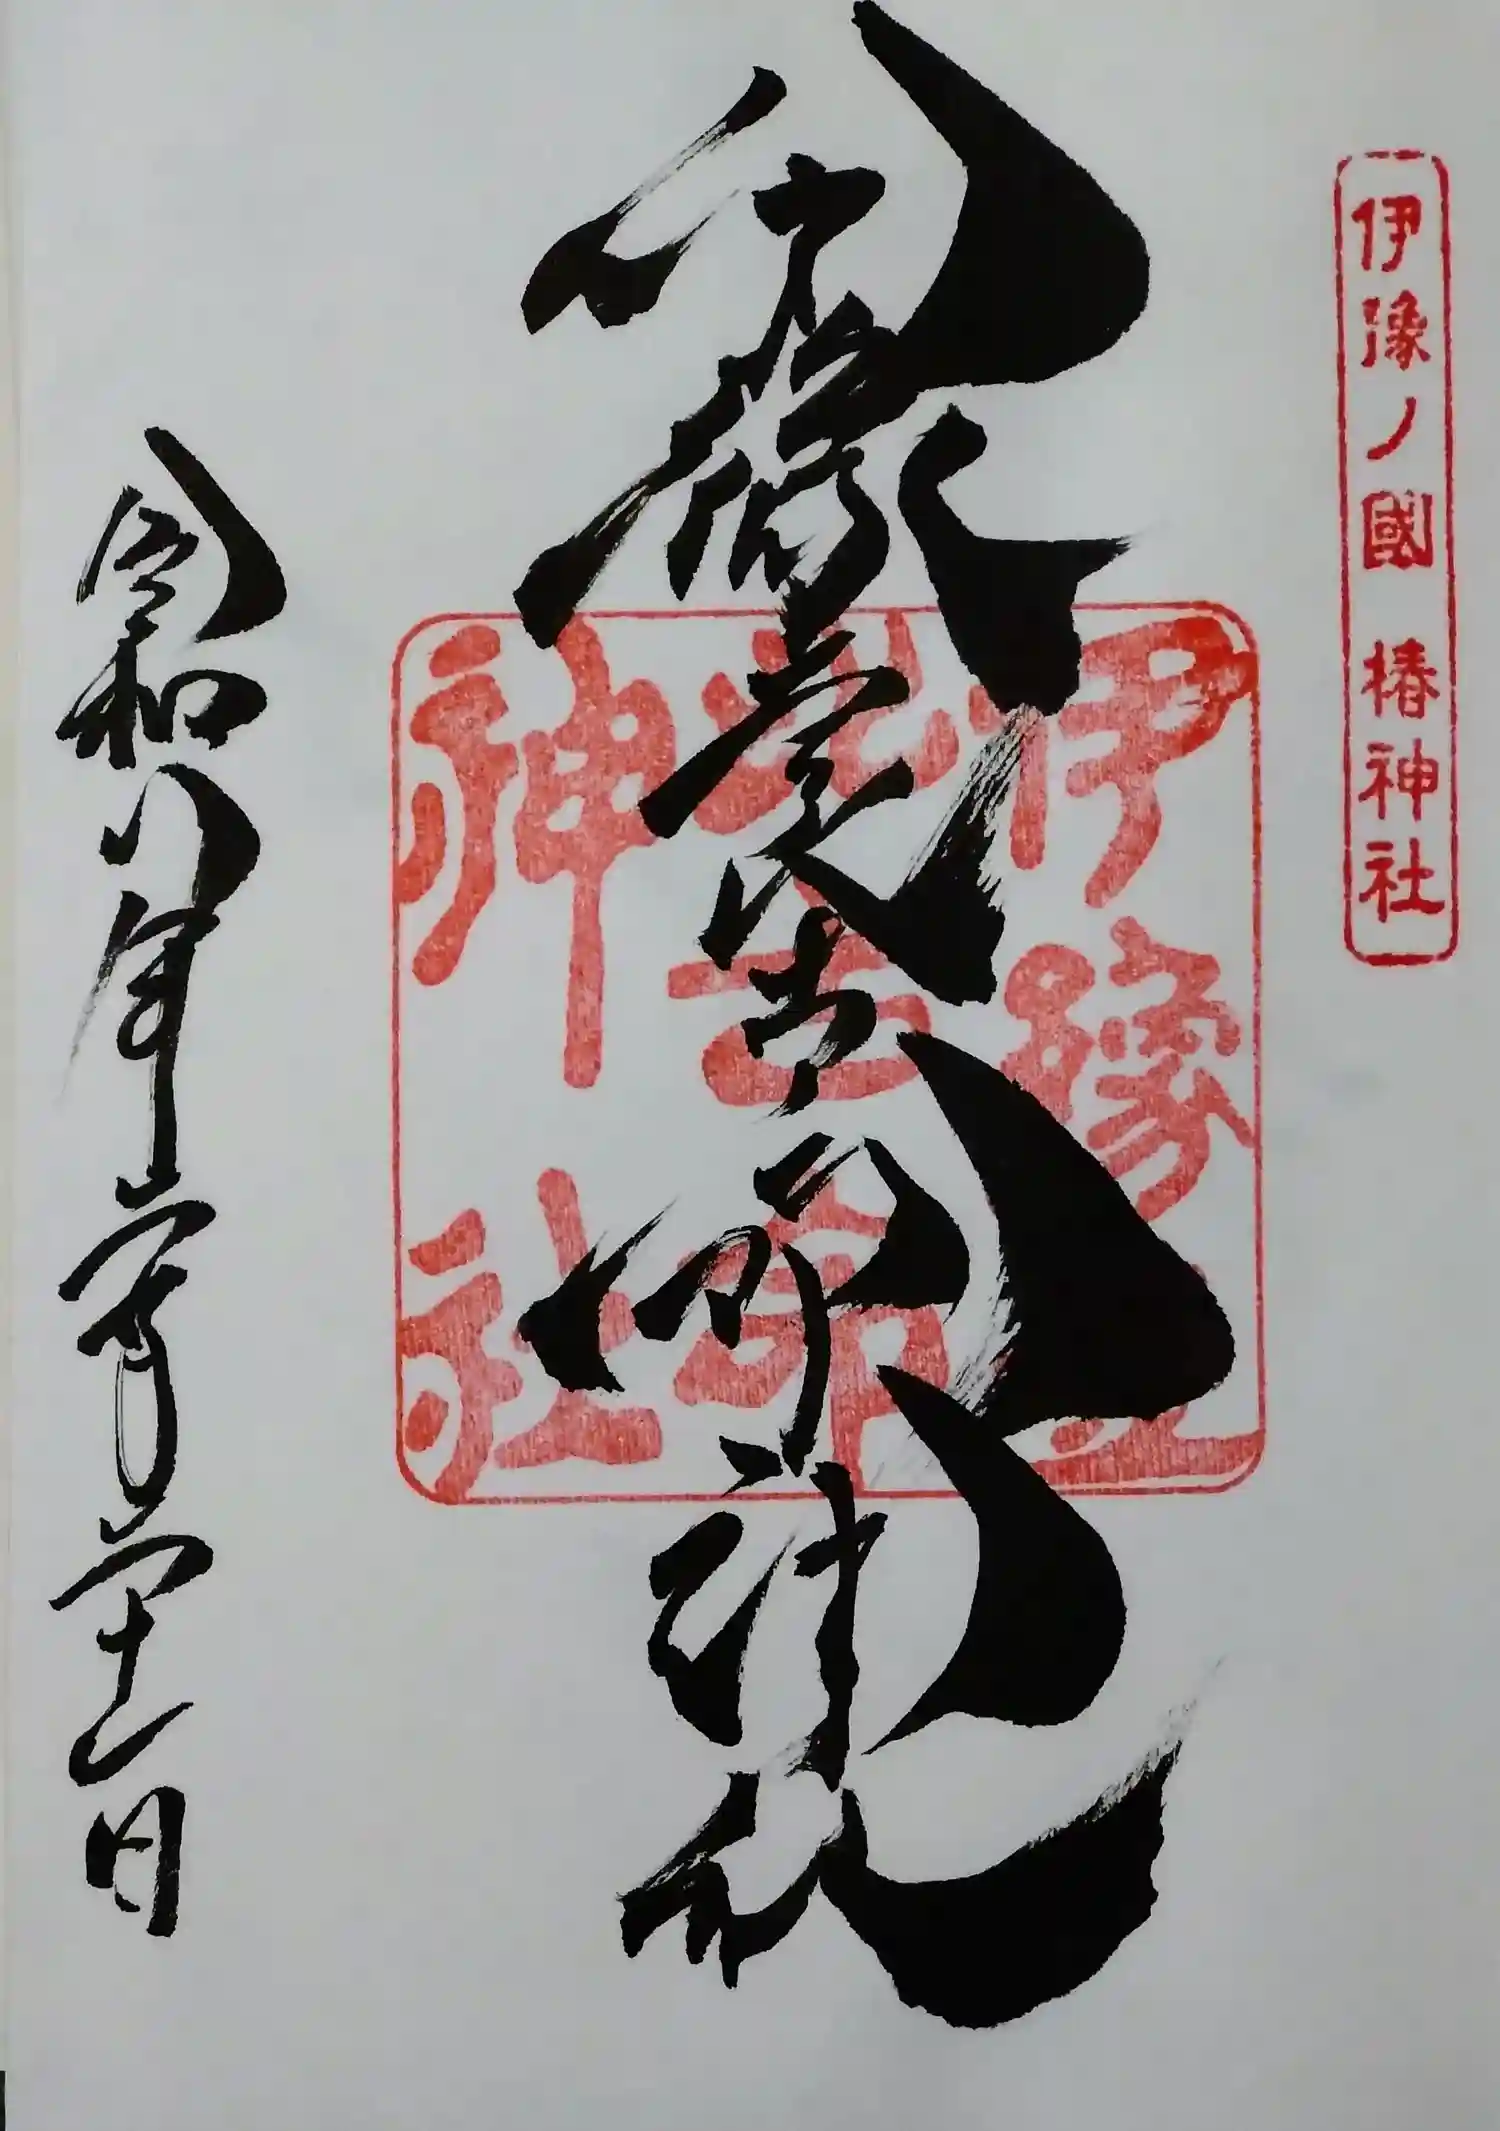 伊豫ノ國 椿神社
伊豫豆比古命神社
伊豫豆
比古命
神社
令和八年 月 日